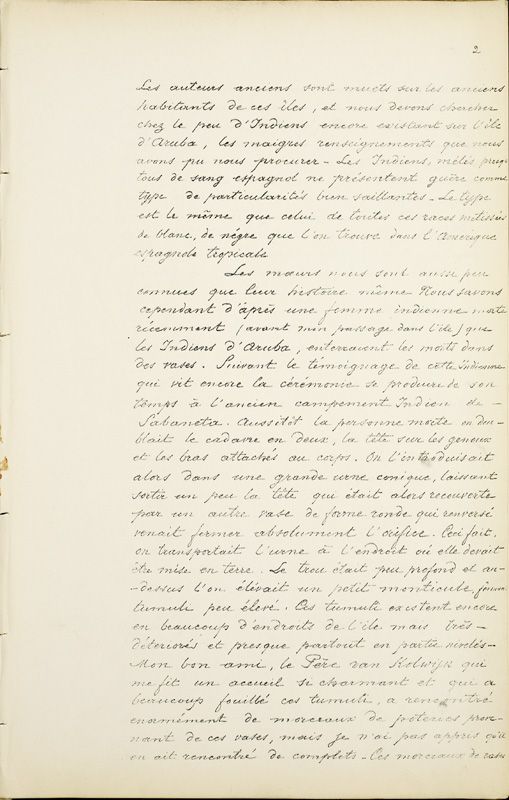 2
Les auteurs anciens sont muets sur les anciens
habitants de ces îles, et nous devons chercher
chez le peu d'Indiens encore existant sur l'île
d'Aruba, les maigres renseignements que nous
avons pu nous procurer - Les Indiens, mêlés presque
tous de sang espagnol ne présentent guère comme
type de particularités bien saillantes - Le type
est le même que celui de toutes ces races métissées
de blanc, de nègre que l'on trouve dans l'Amérique
espagnole tropicale
Les mœurs nous sont aussi peu
connues que leur histoire même Nous savons
cependant d'après une femme indienne morte
récemment (avant mon passage dans l'île) que
les Indiens d'Aruba, enterraient les morts dans
des vases. Suivant le témoignage de cette indienne
qui vit encore la cérémonie se produire de son
temps à l'ancien campement Indien de -
Sabaneta. Aussitôt la personne morte on dou-
blait le cadavre en deux, la tête sur les genoux
et les bras attachés au corps. On l'introduisait
alors dans une grande urne conique, laissant
sortir un peu la tête qui était alors recouverte
par un autre vase de forme ronde qui renversé
venait fermer absolument l'orifice. Ceci fait,
on transportait l'urne à l'endroit où elle devait
être mise en terre. Le trou était peu profond et au-
-dessus l'on élevait un petit monticule,
tumuli peu élevé. Ces tumuli existent encore
en beaucoup d'endroits de l'île mais très-
détériorés et presque partout en partie nivelés -
Mon bon ami, le Père van Kolwijk qui
me fit un accueil si charmant et qui a
beaucoup fouillé ces tumuli, a rencontré
énormément de morceaux de poteries prove-
nant de ces vases, mais je n'ai pas appris qu'il
en ait rencontré de complets - Ces morceaux de vases